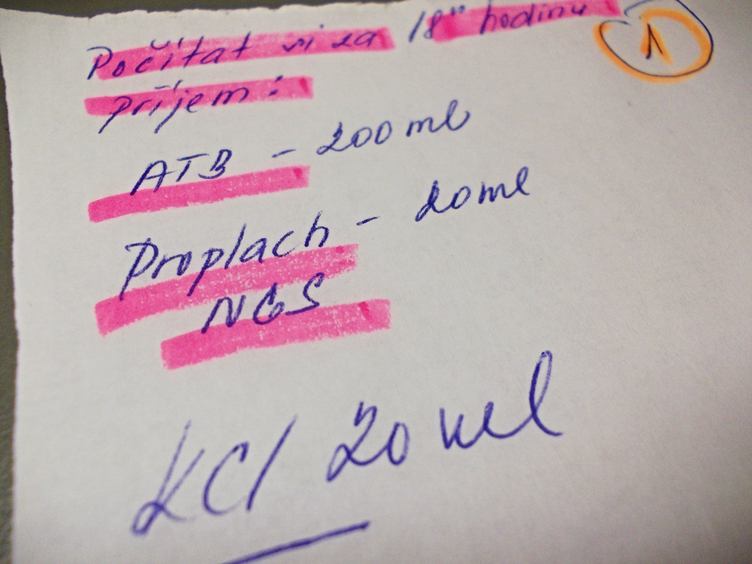 Počítat si za 18⁰⁰ hodinu
příjem:
1
ATB - 200 ml
Proplach - 20 ml
NGS
KCl 20 ml